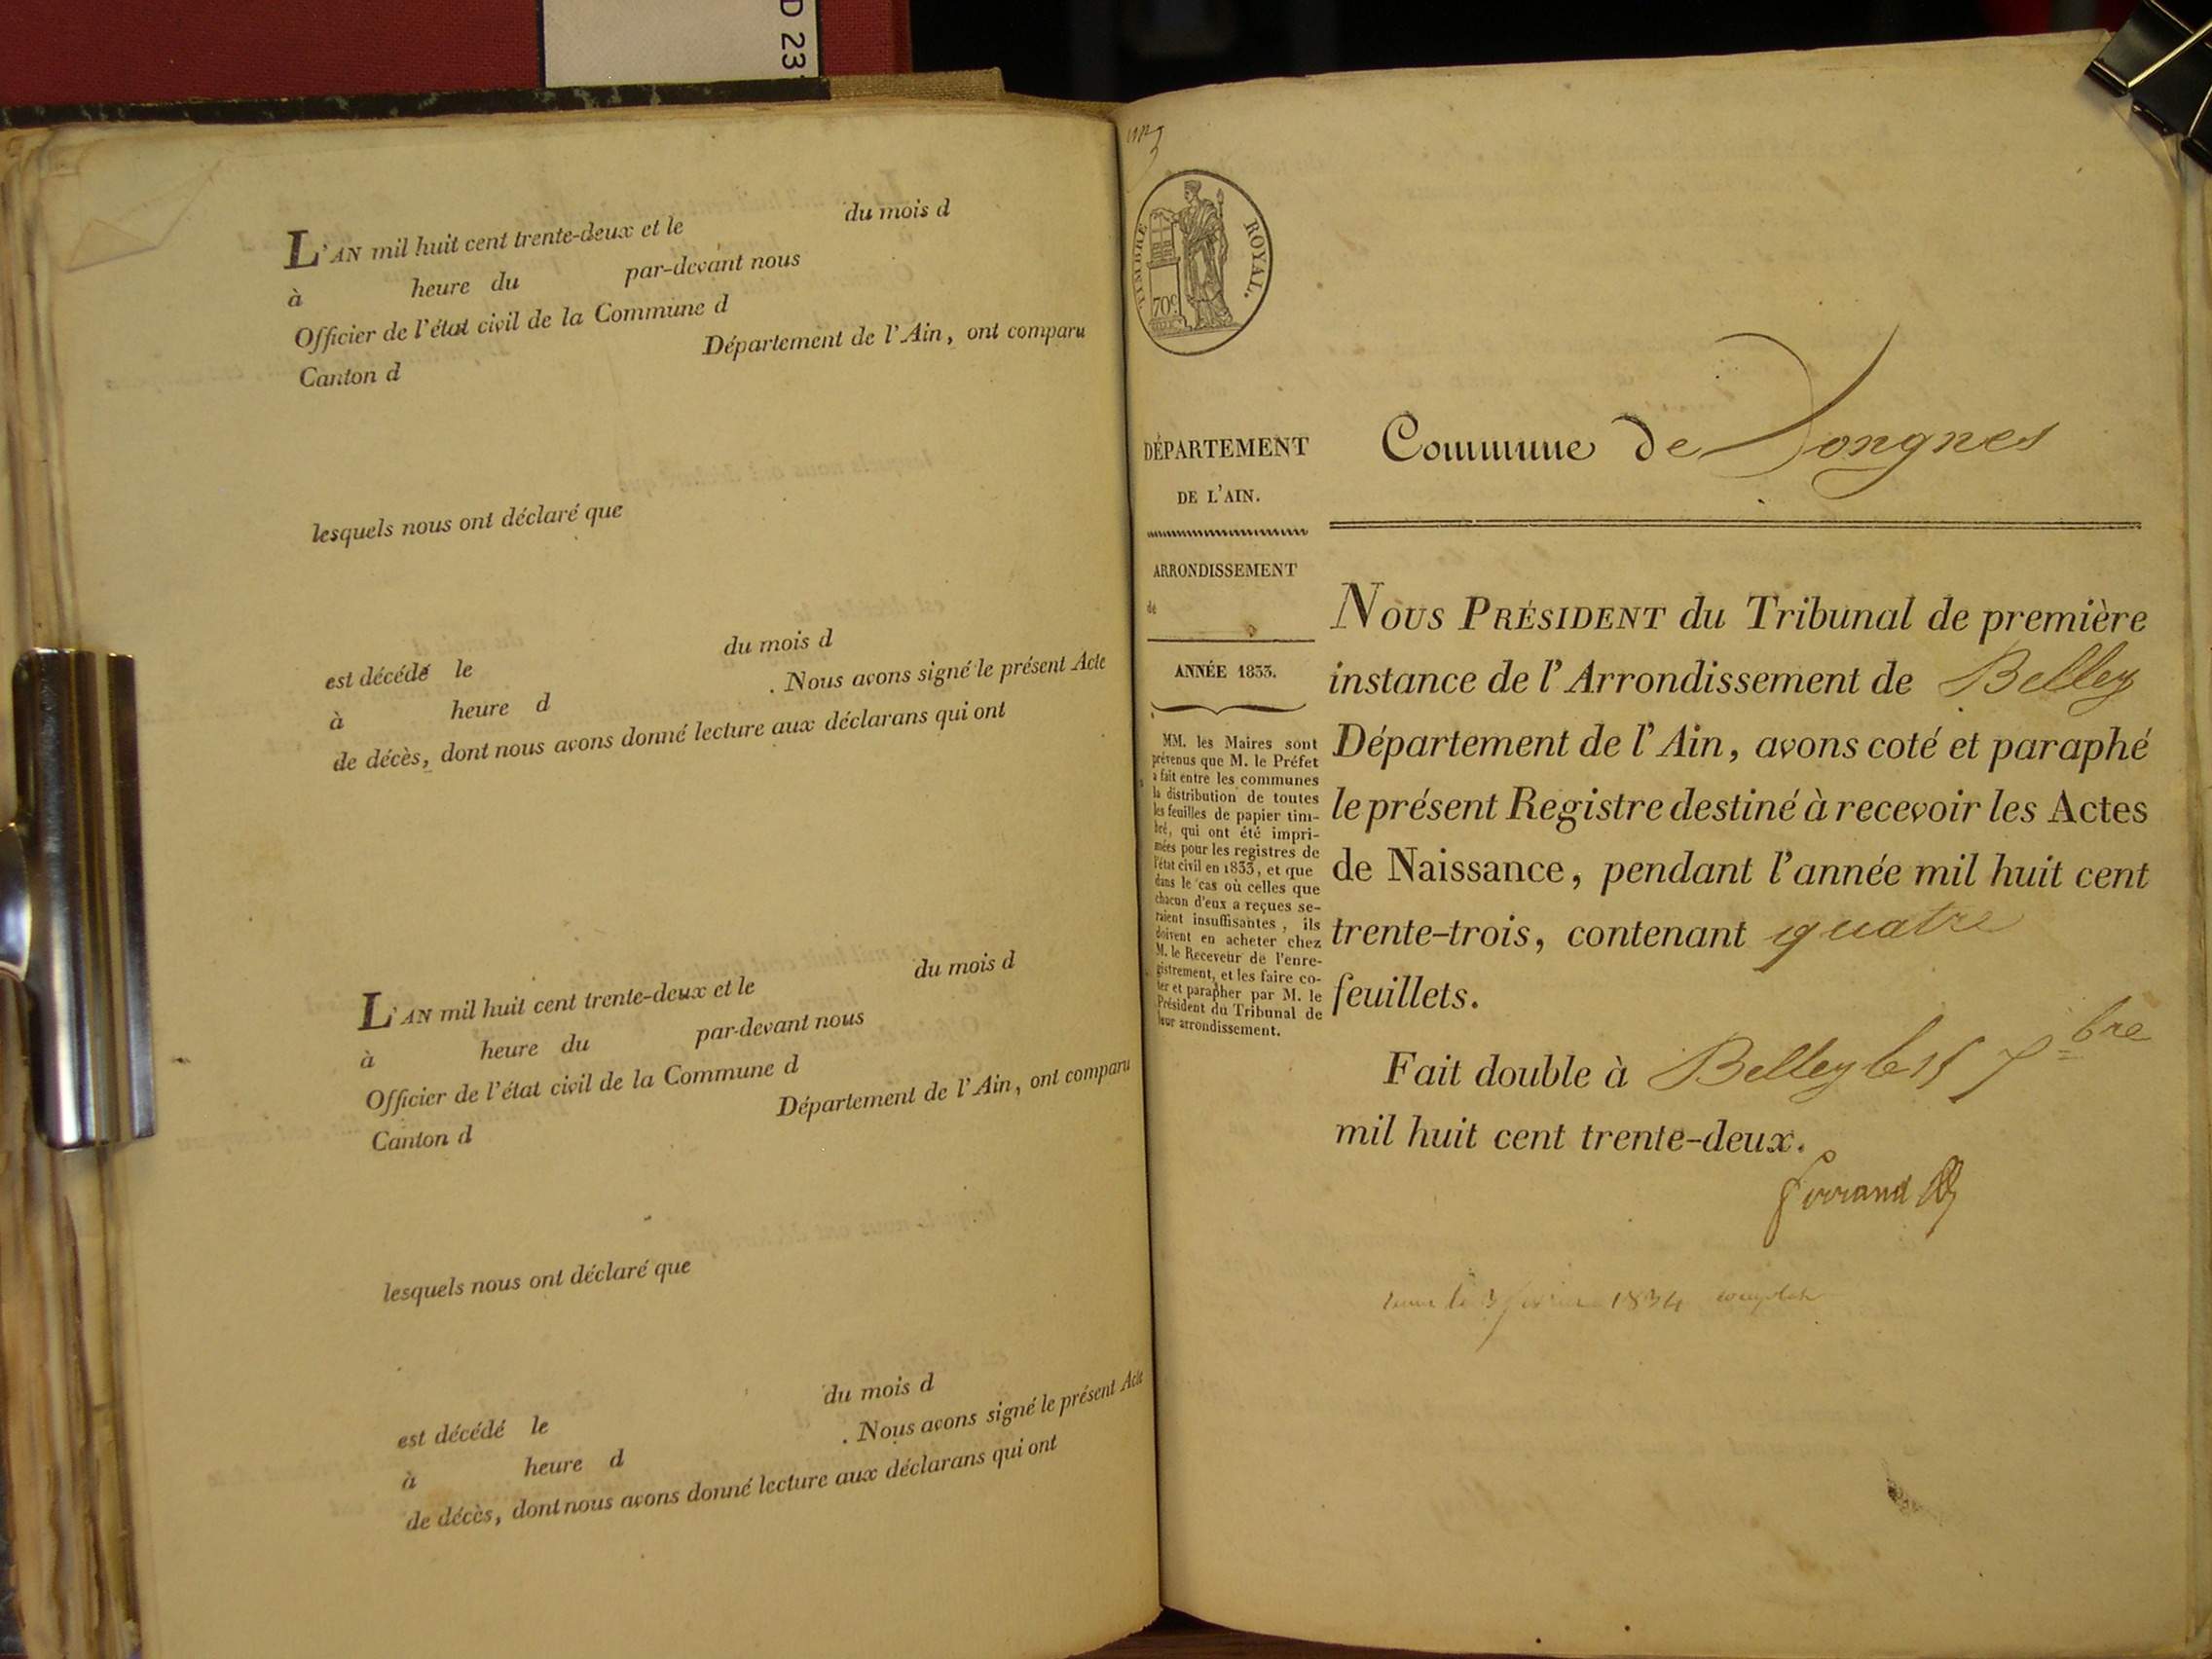 D 23
L'AN mil huit cent trente-deux et le du mois d
à heure du par-devant nous
Officier de l'état civil de la Commune d
Canton d Département de l'Ain, ont comparu
lesquels nous ont déclaré que
est décédé le du mois d
à heure d . Nous avons signé le présent Acte
de décès, dont nous avons donné lecture aux déclarans qui ont
L'AN mil huit cent trente-deux et le du mois d
à heure du par-devant nous
Officier de l'état civil de la Commune d
Canton d Département de l'Ain, ont comparu
lesquels nous ont déclaré que
est décédé le du mois d
à heure d . Nous avons signé le présent Acte
de décès, dont nous avons donné lecture aux déclarans qui ont
TIMBRE ROYAL.
70c.
DÉPARTEMENT
DE L'AIN.
ARRONDISSEMENT
de
ANNÉE 1833.
MM. les Maires sont
prévenus que M. le Préfet
a fait entre les communes
la distribution de toutes
les feuilles de papier tim-
bré, qui ont été impri-
mées pour les registres de
l'état civil en 1833, et que
dans le cas où celles que
chacun d'eux a reçues se-
raient insuffisantes, ils
doivent en acheter chez
M. le Receveur de l'enre-
gistrement, et les faire co-
ter et parapher par M. le
Président du Tribunal de
leur arrondissement.
Commune de Songnes
NOUS PRÉSIDENT du Tribunal de première
instance de l'Arrondissement de Belley
Département de l'Ain, avons coté et paraphé
le présent Registre destiné à recevoir les Actes
de Naissance, pendant l'année mil huit cent
trente-trois, contenant quatre
feuillets.
Fait double à Belley le 15 7bre
mil huit cent trente-deux.
1834